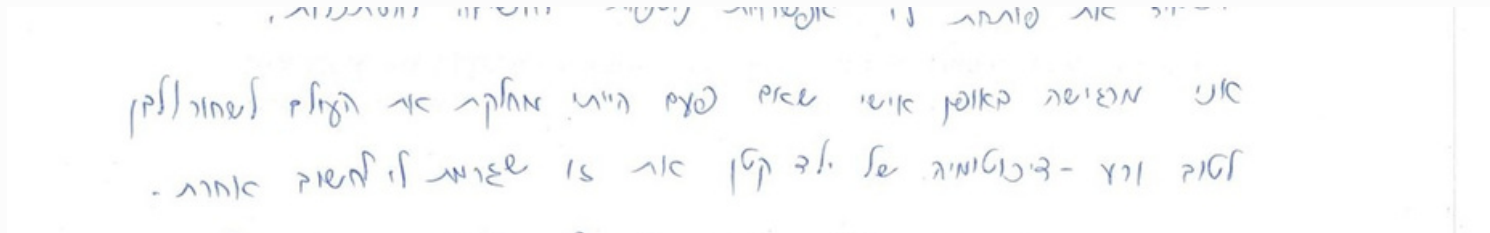 את פותחת לי אפשרויות
אני מרגישה באופן אישי שאם פעם הייתי מחלקת את העולם לשחור ולבן
לטוב ורע - דיכוטומיה של ילד קטן את זו שגרמת לי לחשוב אחרת.